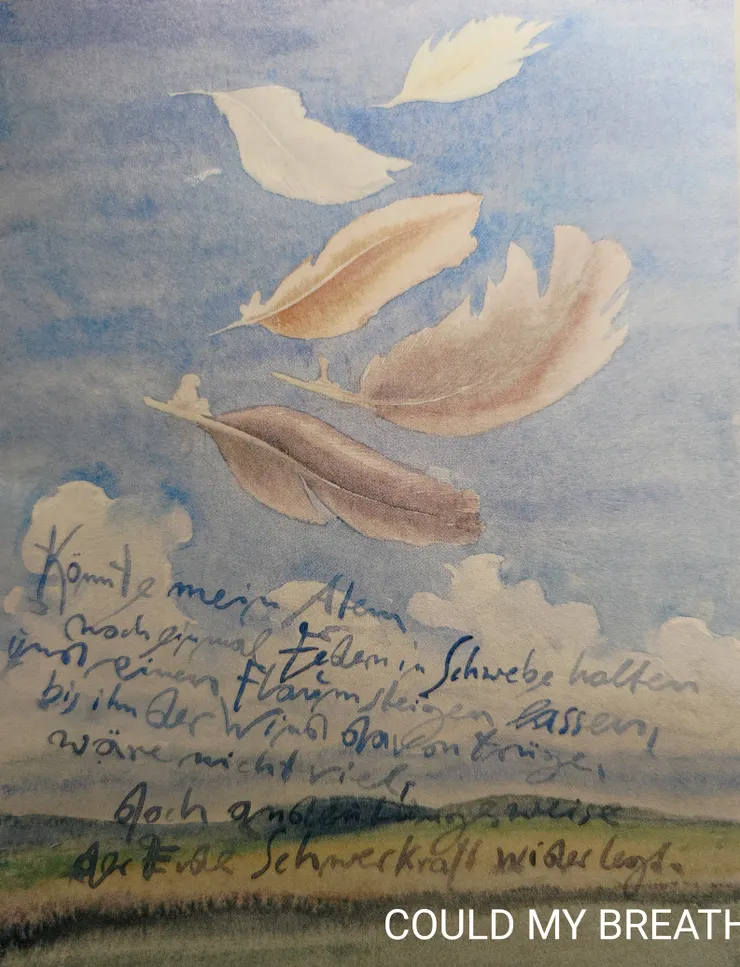 Könnte mein Atem
noch einmal Federn in Schwebe halten
und einen Flaum steigen lassen,
bis ihn der Wind davon trüge,
wäre nicht viel,
doch andeutungsweise
der Erde Schwerkraft widerlegt.
COULD MY BREATH